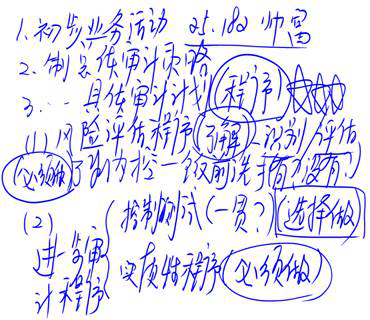 1.初步业务活动 25.182 帅富
2.制总体审计策略
3.… 具体审计计划 程序
(1)风险评估程序 了解 识别/评估
必须做 了解内控一饭前洗手有没有?
(2)
进一步审计程序
控制测试(一贯?) 选择做
实质性程序 必须做